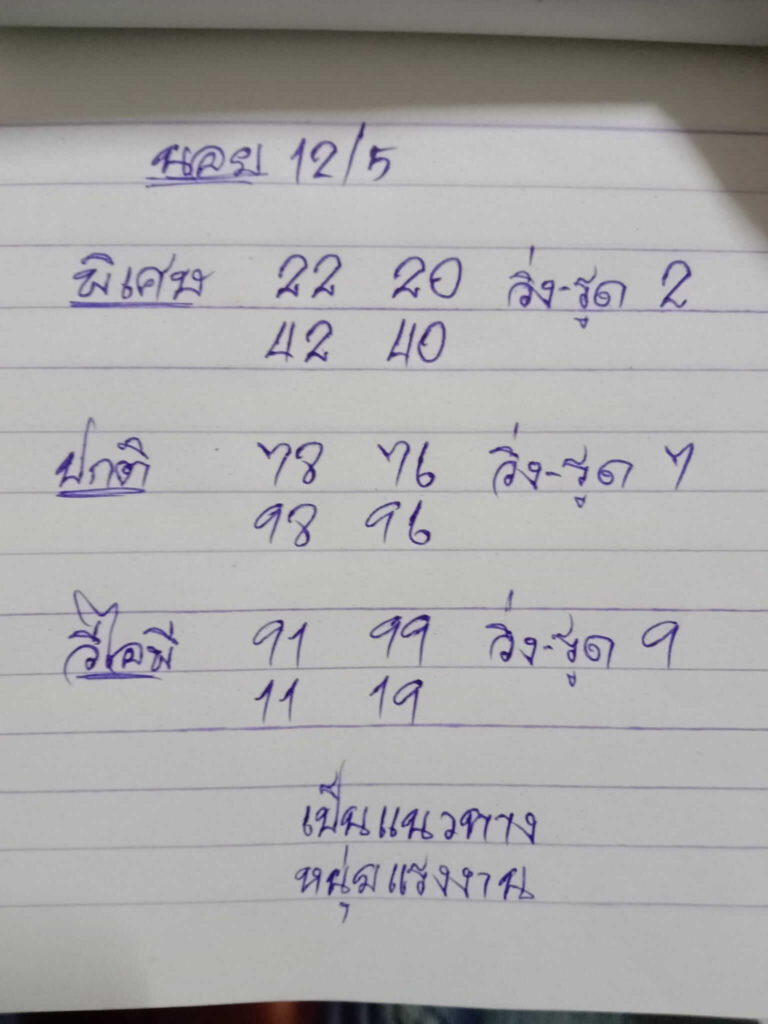 นอย 12/5
พิเศษ 22 20 วิ่ง-รูด 2
42 40
ปกติ 78 76 วิ่ง-รูด 7
98 96
วีไอพี 91 99 วิ่ง-รูด 9
11 19
เป็นแนวทาง
หนุ่มแรงงาน